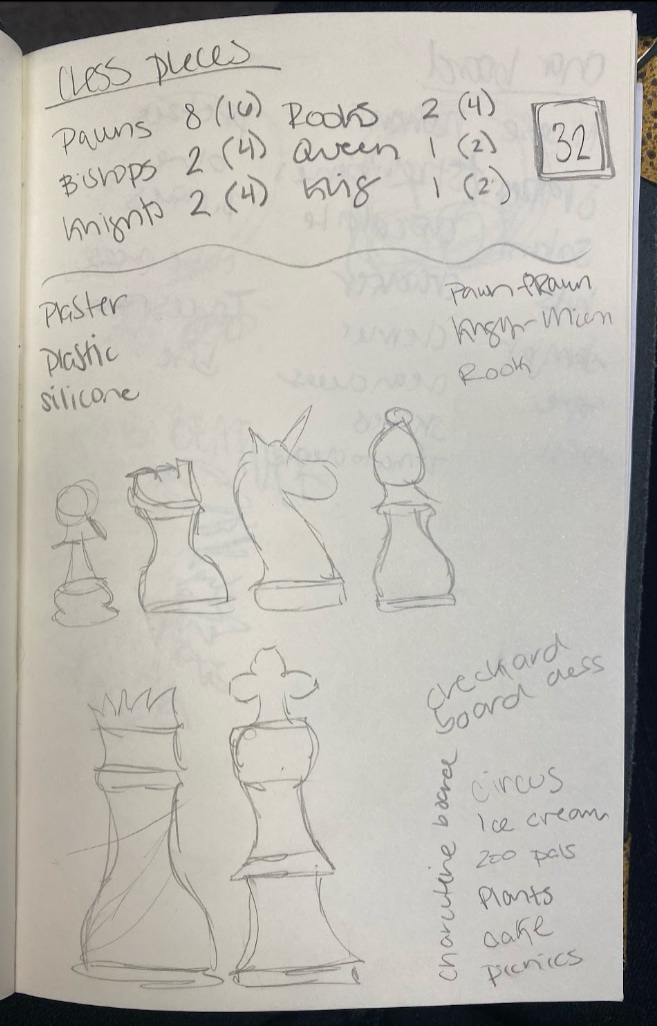 Chess pieces
Pawns 8 (16) Rooks 2 (4)
Bishops 2 (4) Queen 1 (2)
Knights 2 (4) King 1 (2)
32
Plaster
Plastic
silicone
Pawn-PRawn
Rook
board chess
charcuterie board
circus
Ice cream
zoo pals
Plants
cake
picnics